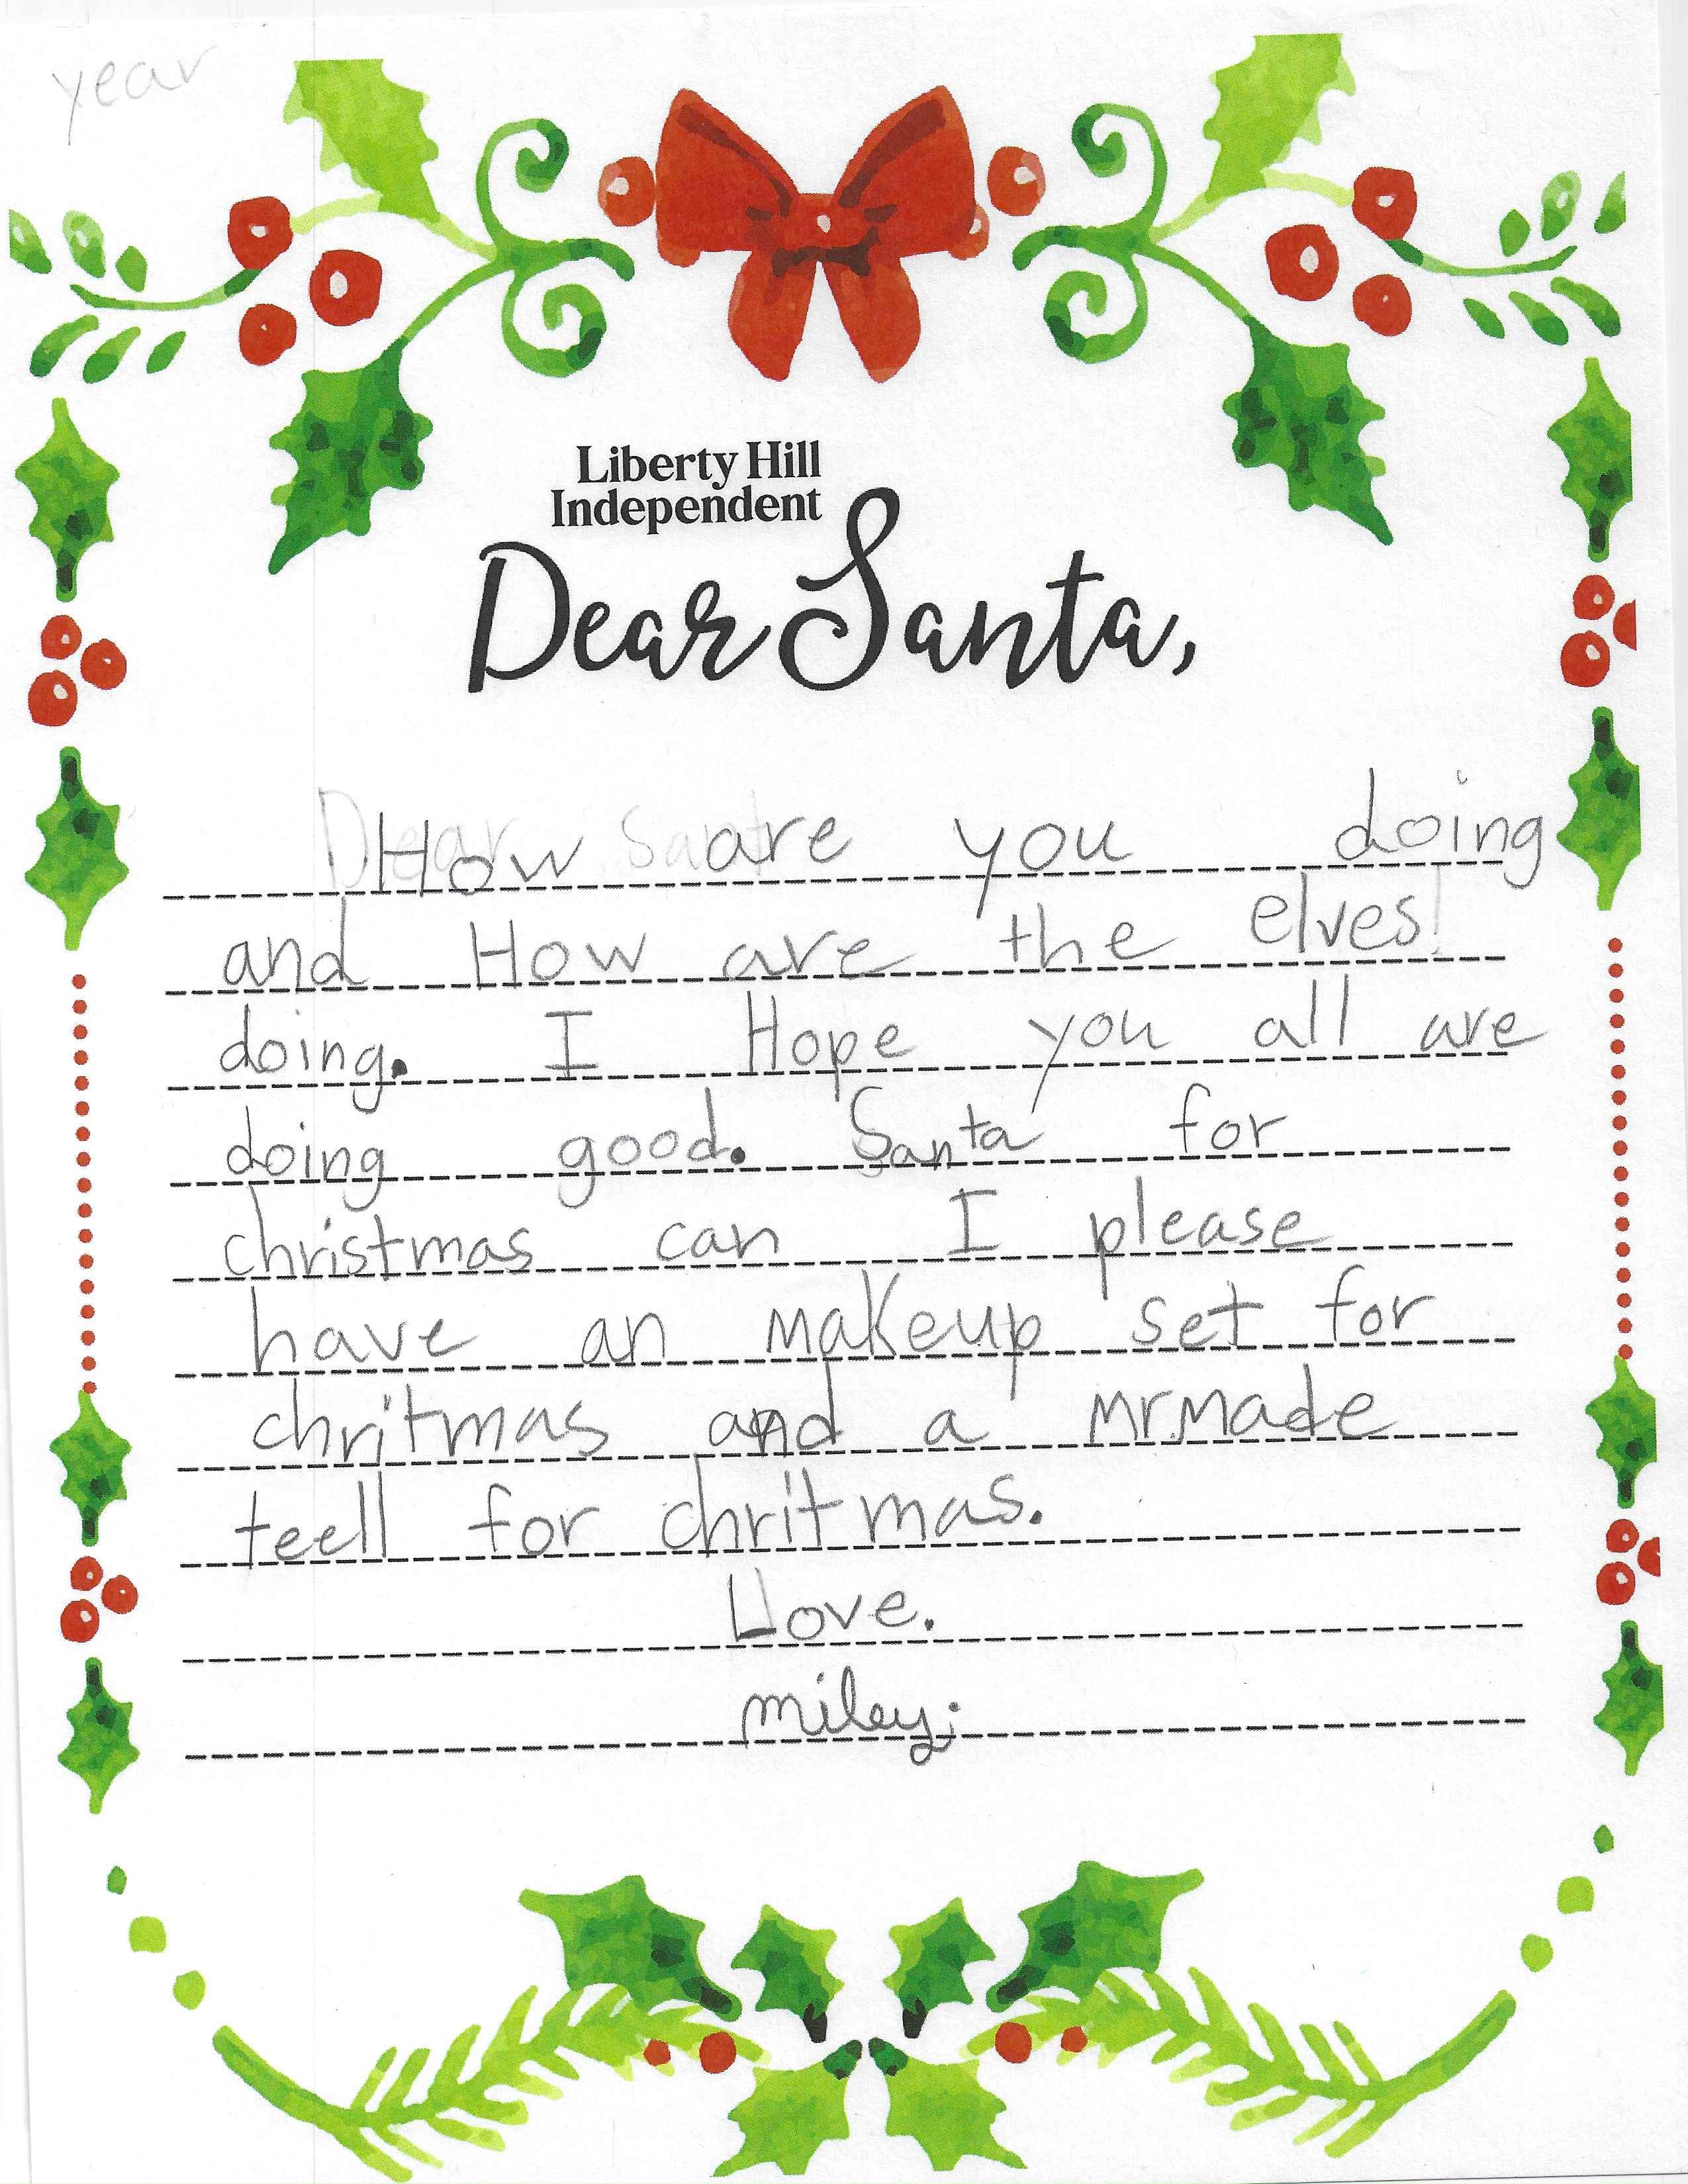 year
Liberty Hill
Independent
Dear Santa,
How are you doing
and How are the elves!
doing. I Hope you all are
doing good. Santa for
christmas can I please
have an makeup set for
chritmas and a mrmade
teell for chritmas.
Love.
miley;